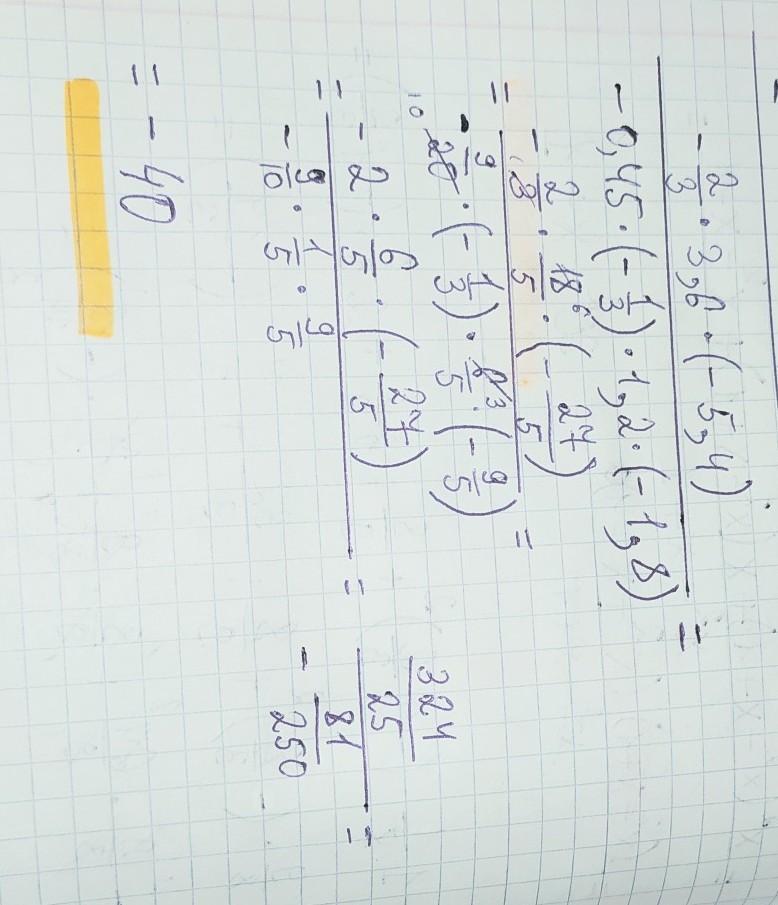 -2/3 · 3,6 · (-5,4)
-0,45 · (-1/3) · 1,2 · (-1,8) =
= -2/3 · 18 6/5 · (-27/5)
10 -9/20 · (-1/3) · 6 3/5 · (-9/5) =
= -2 · 6/5 · (-27/5)
-9/10 · 1/5 · 9/5 =
324/25
-81/250 =
= -40